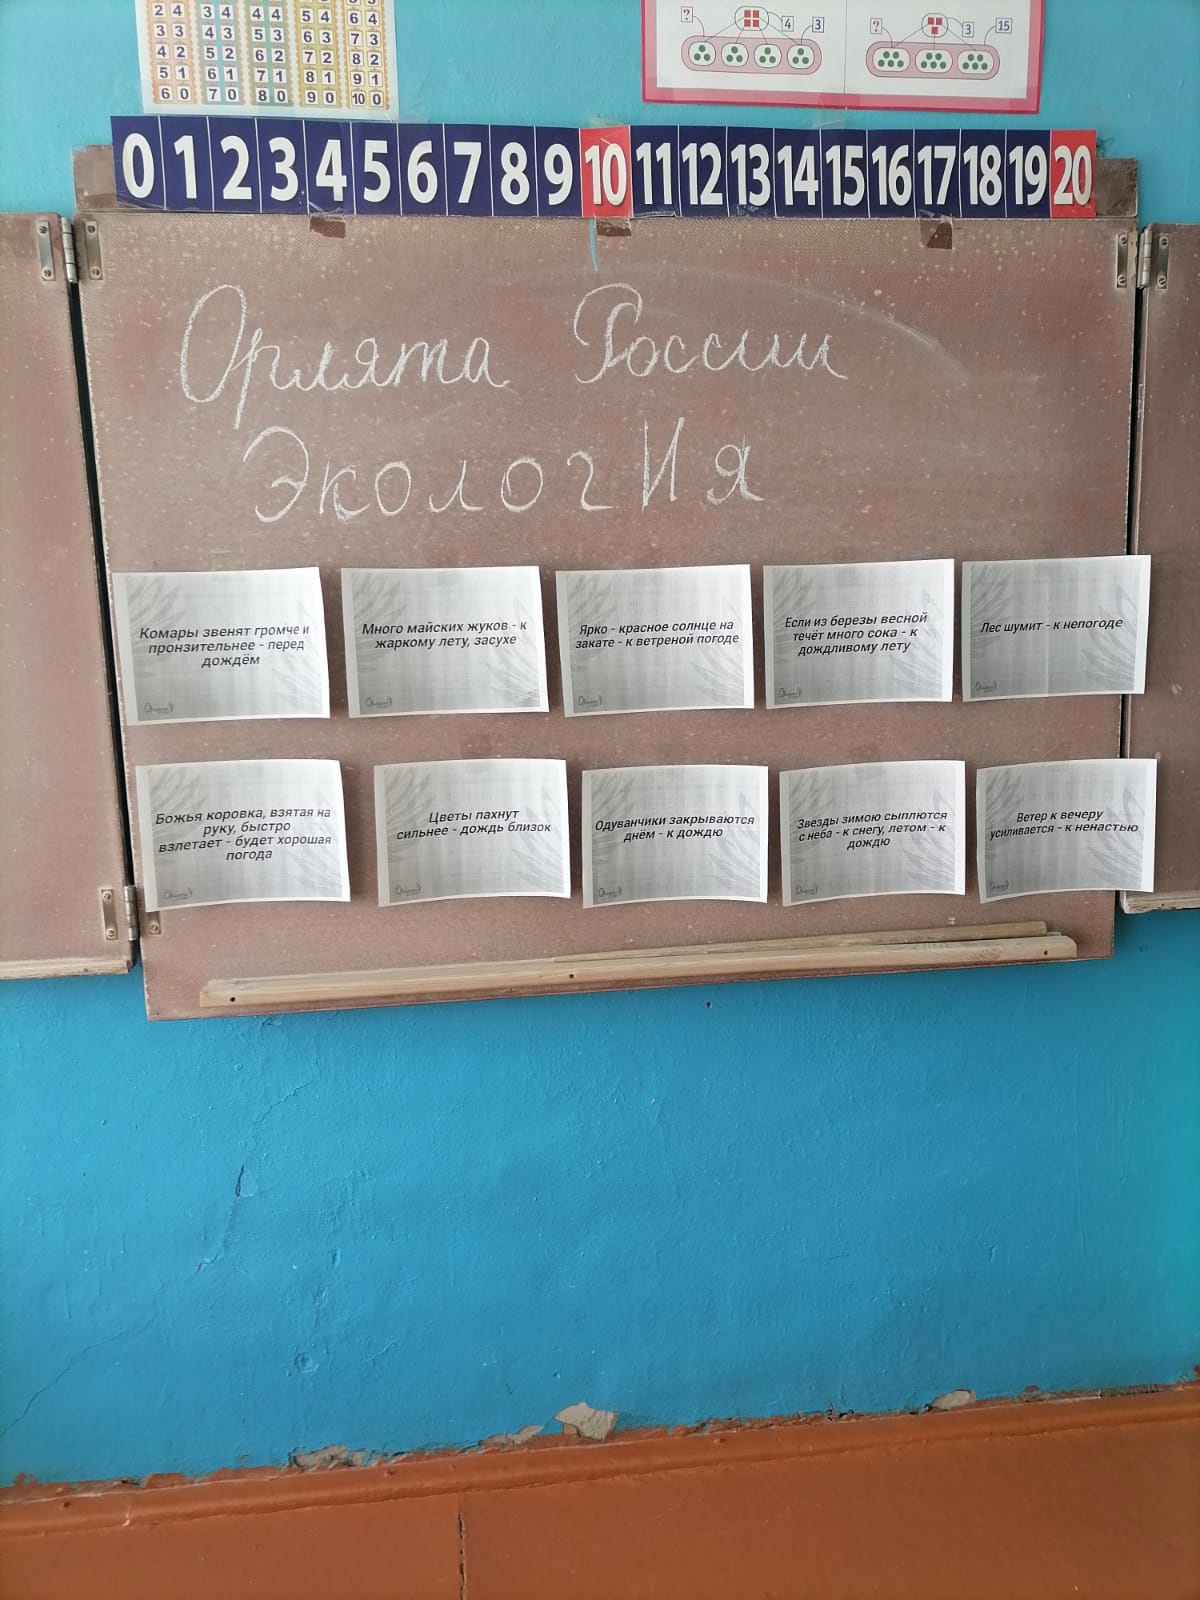 2 4 3 4 4 4 5 4 6 4
3 3 4 3 5 3 6 3 7 3
4 2 5 2 6 2 7 2 8 2
5 1 6 1 7 1 8 1 9 1
6 0 7 0 8 0 9 0 10 0
? 4 3
? 3 15
0 1 2 3 4 5 6 7 8 9 10 11 12 13 14 15 16 17 18 19 20
Орлята России
ЭкологИя
Комары звенят громче и
пронзительнее - перед
дождём
Много майских жуков - к
жаркому лету, засухе
Ярко - красное солнце на
закате - к ветреной погоде
Если из березы весной
течёт много сока - к
дождливому лету
Лес шумит - к непогоде
Божья коровка, взятая на
руку, быстро
взлетает - будет хорошая
погода
Цветы пахнут
сильнее - дождь близок
Одуванчики закрываются
днём - к дождю
Звезды зимою сыплются
с неба - к снегу, летом - к
дождю
Ветер к вечеру
усиливается - к ненастью